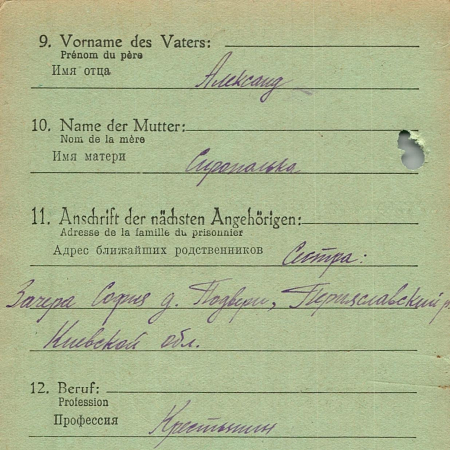 9. Vorname des Vaters:
Prénom du père
Имя отца Александ
10. Name der Mutter:
Nom de la mère
Имя матери
11. Anschrift der nächsten Angehörigen:
Adresse de la famille du prisonnier
Адрес ближайших родственников Сестра:
София д.
Киевской обл.
12. Beruf:
Profession
Профессия Крестьянин